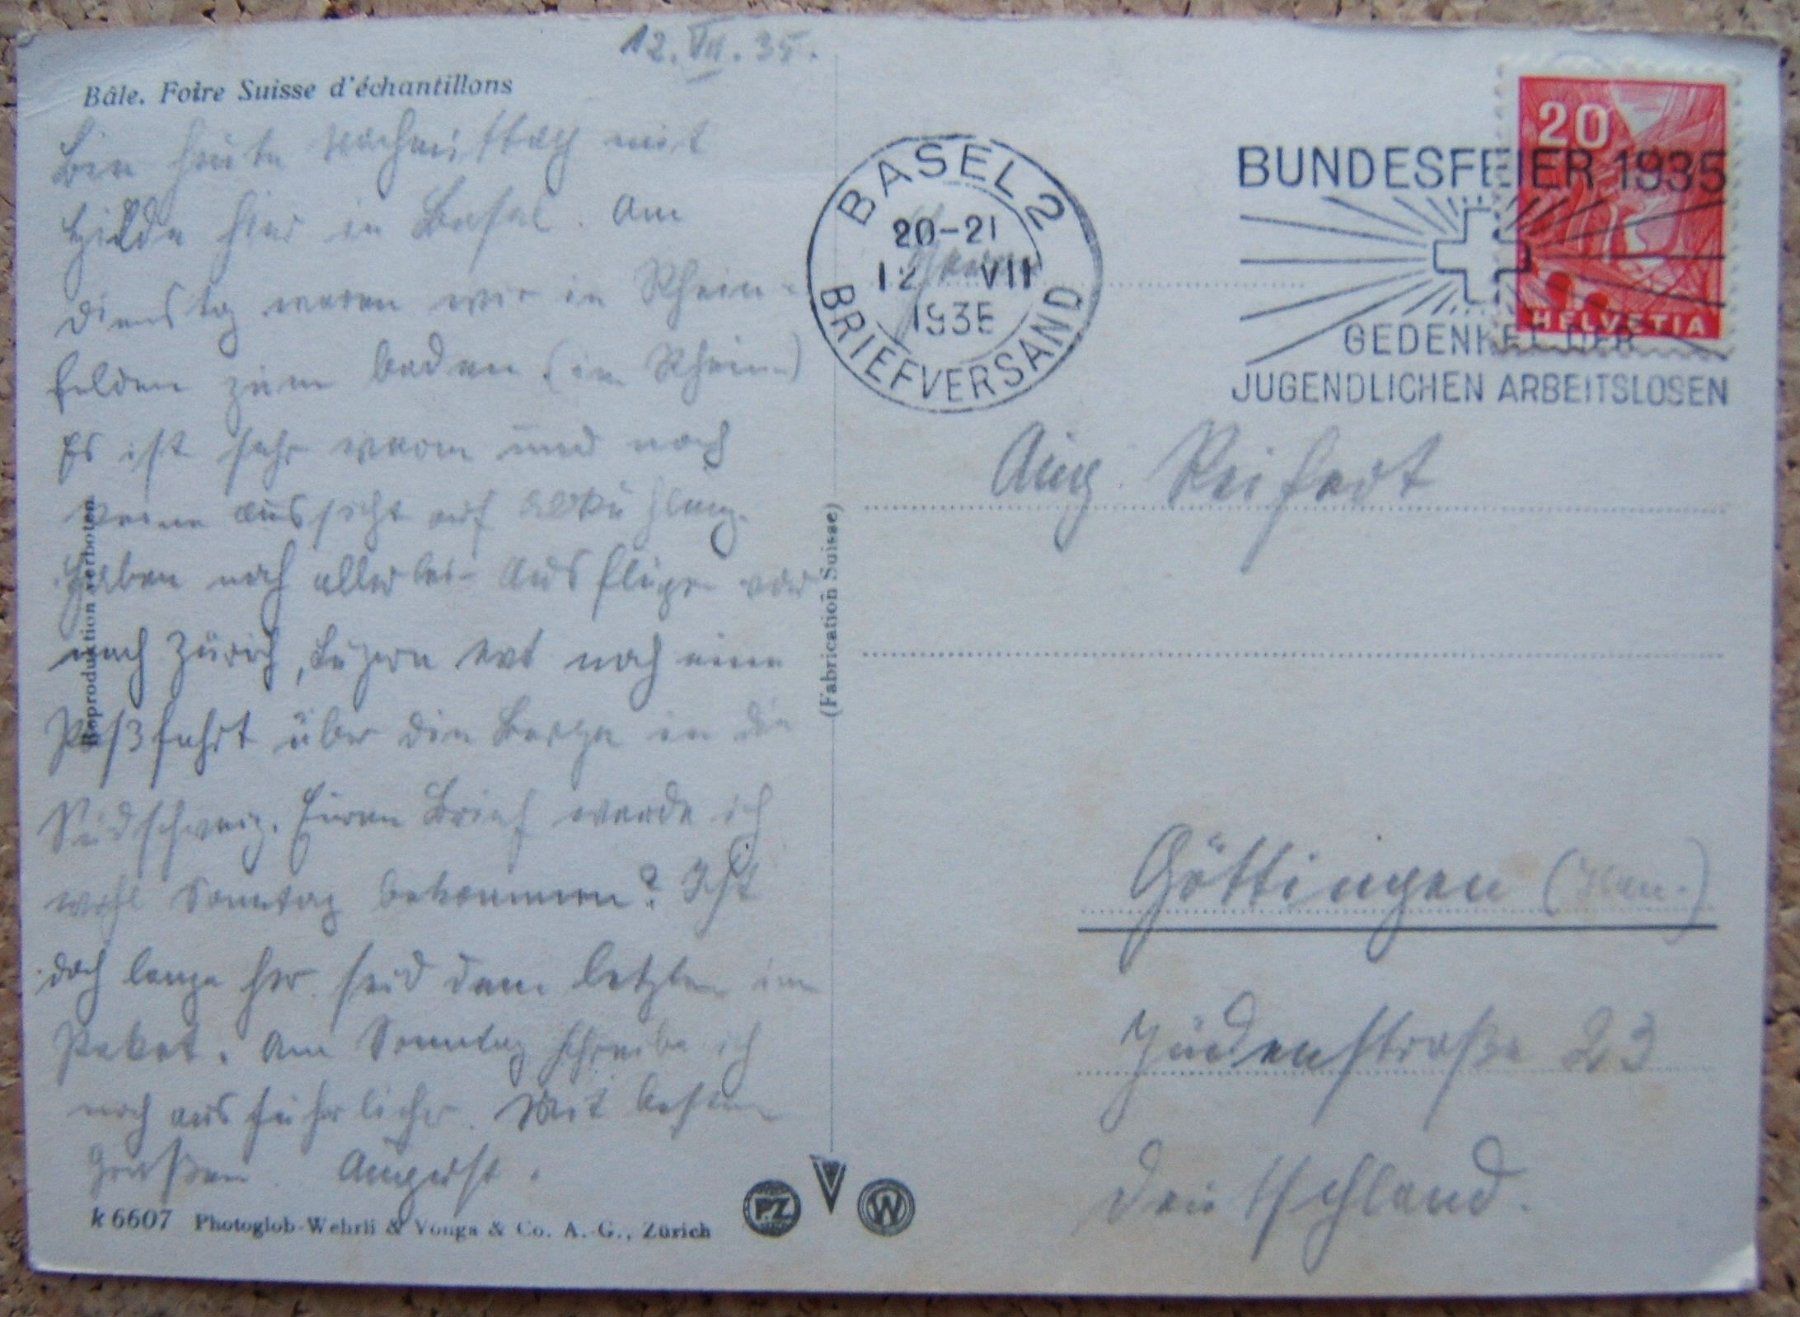 12. VII. 35.
Bâle. Foire Suisse d'échantillons
Bin heute Nachmittag mit
Hilde hier in Basel. Am
Dienstag waren wir in Rhein-
felden zum baden (im Rhein)
Es ist sehr warm und noch
keine Aussicht auf Abkühlung.
Haben noch allerlei Ausflüge vor
nach Zürich, Luzern evt noch eine
Paßfahrt über die Berge in die
Südschweiz. Euren Brief werde ich
wohl Sonntag bekommen? Ist
doch lange her seid dem letzten im
Paket. Am Sonntag schreibe ich
noch ausführlicher. Mit besten
Grüßen. August.
Reproduktion verboten
(Fabrication Suisse)
k 6607 Photoglob-Wehrli & Vouga & Co. A.-G., Zürich
PZ V W
BASEL 2
20-21
12 VII
1935
BRIEFVERSAND
BUNDESFEIER 1935
GEDENKET DER
JUGENDLICHEN ARBEITSLOSEN
20
HELVETIA
Aug. Reifert
Göttingen (Han.)
Jüdenstraße 23
Deutschland.